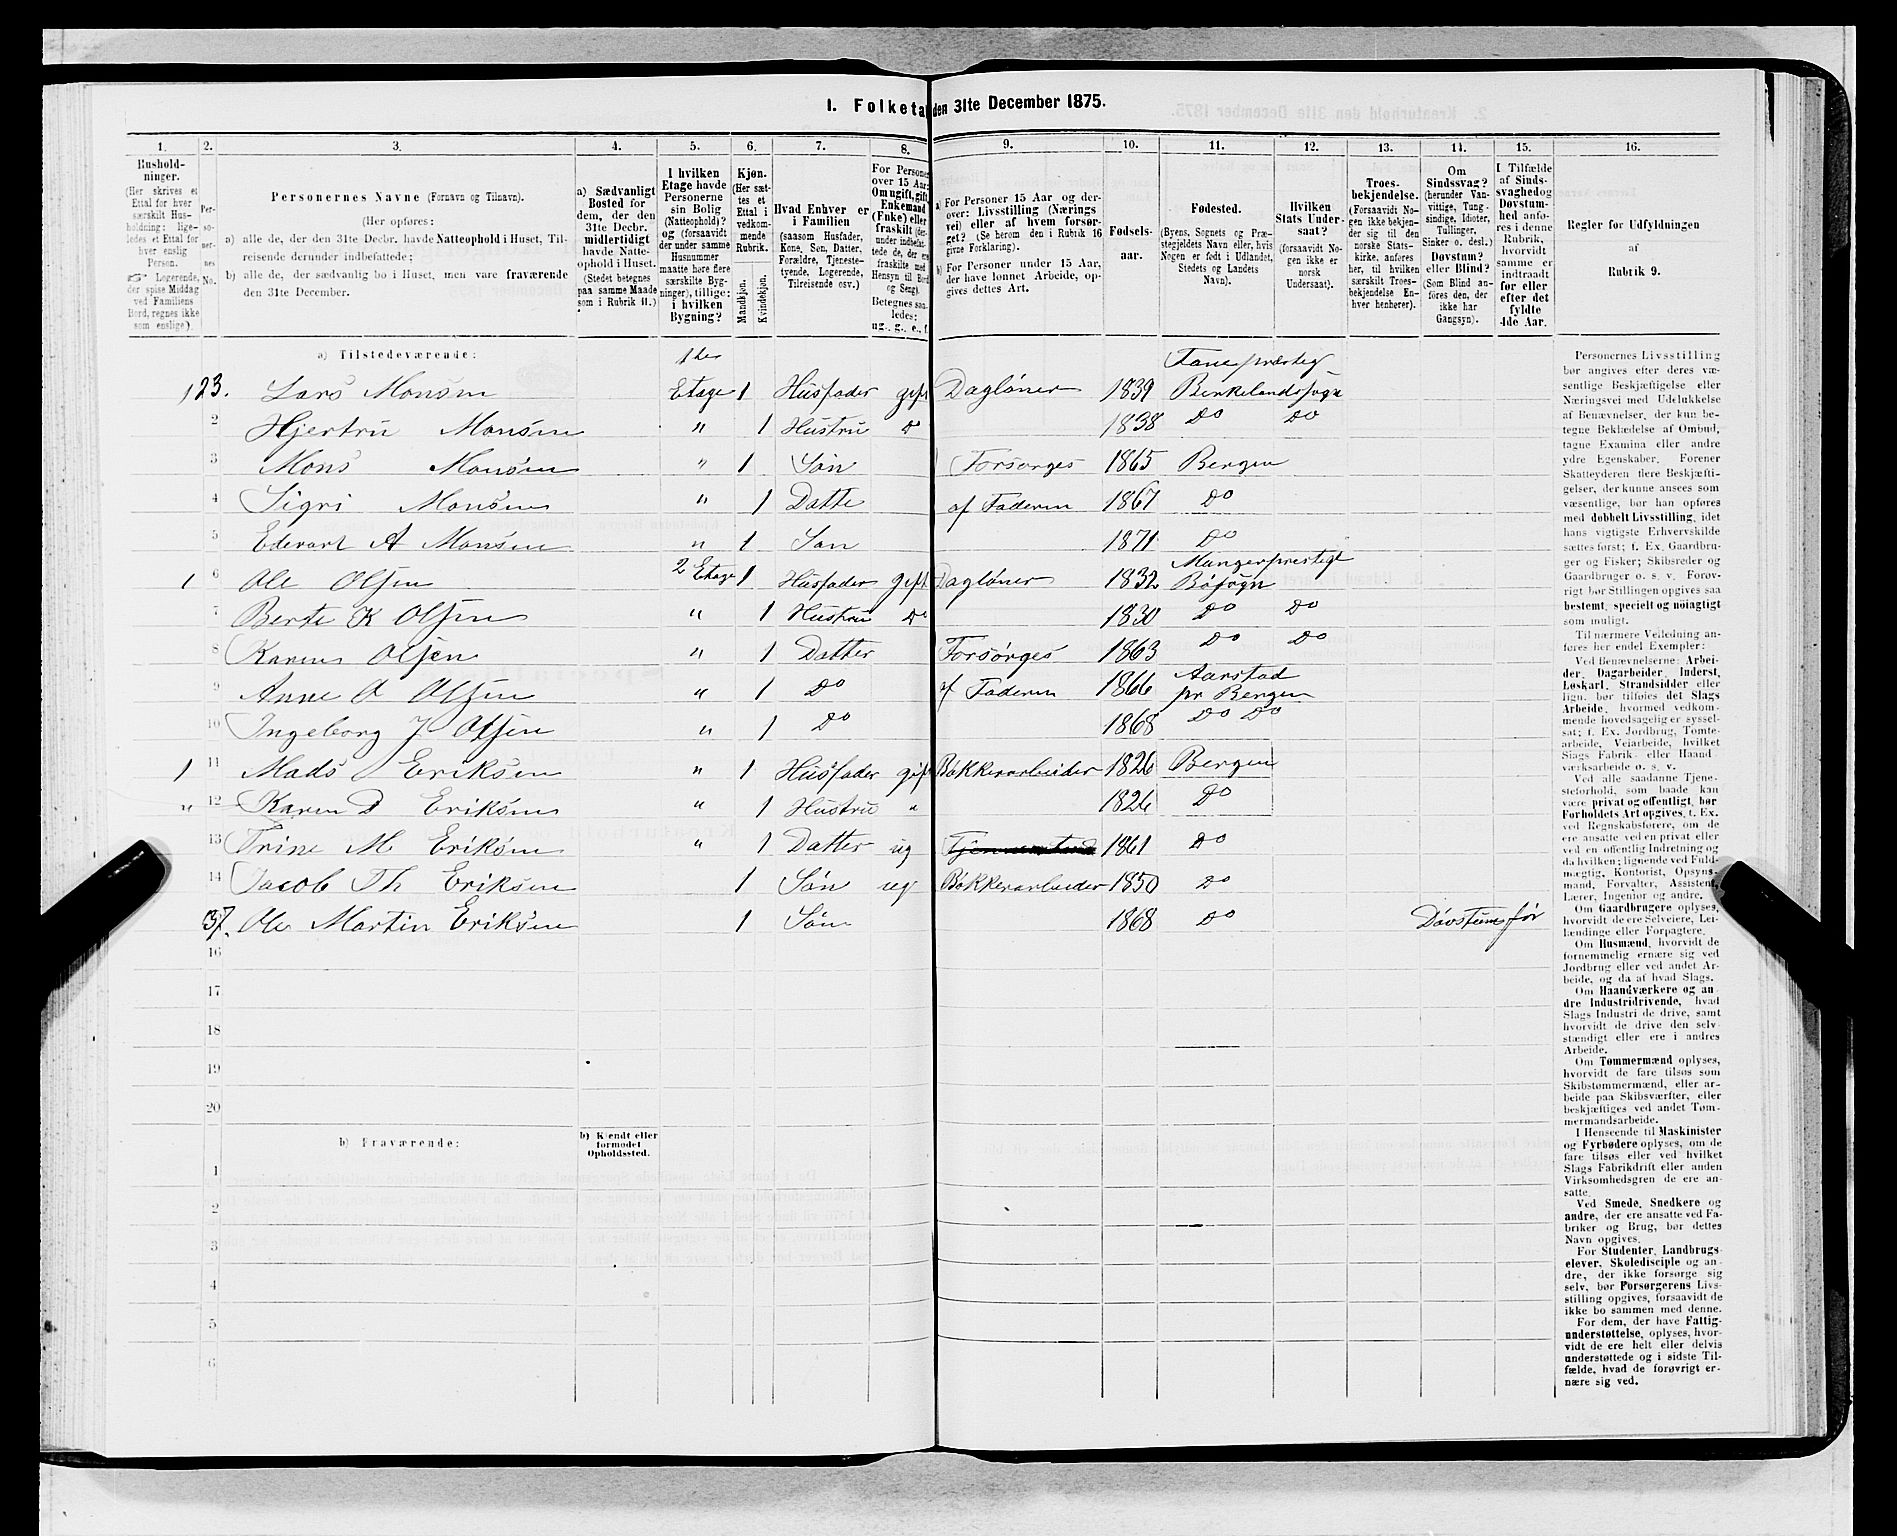 1. Folketal den 31te December 1875.
1. 2. 3. 4. 5. 6. 7. 8. 9. 10. 11. 12. 13. 14. 15. 16.
Husholdninger.
(Her skrives et
Ettal for hver
særskilt Husholdning;
ligeledes et Ettal for
hver enslig
Person.
☞ Logerende,
der spise Middag
ved Familiens
Bord, regnes ikke
som enslige).
Personernes No.
Personernes Navne (Fornavn og Tilnavn).
(Her opføres:
a) alle de, der den 31te Decbr. havde Natteophold i Huset, Tilreisende derunder indbefattede;
b) alle de, der sædvanlig bo i Huset, men vare fraværende
den 31te December.
a) Sædvanligt
Bosted for
dem, der den
31te Decbr.
midlertidigt
havde Natteophold i Huset.
(Stedet betegnes
paa samme Maade
som i Rubrik 11.)
I hvilken
Etage havde
Personerne
sin Bolig
(Natteophold)?
og (forsaavidt
der under samme
Husnummer
maatte høre flere
særskilte Bygninger), tillige:
i hvilken
Bygning?
Kjøn.
(Her sættes et
Ettal i
vedkommende
Rubrik.
Mandkjøn.
Kvindekjøn.
Hvad Enhver er
i Familien
(saasom Husfader,
Kone, Søn, Datter,
Forældre, Tjenestetyende, Logerende,
Tilreisende osv.)
For Personer
over 15 Aar:
Om ugift, gift,
Enkemand
(Enke) eller
fraskilt
Betegnes saaledes:
ug., g., e., f.
a) For Personer 15 Aar og derover: Livsstilling (Næringsvei) eller af hvem forsørget? (Se herom den i Rubrik 16
givne Forklaring).
b) For Personer under 15 Aar,
der have lønnet Arbeide, opgives dettes Art.
Fødselsaar.
Fødested.
(Byens, Sognets og Præstegjeldets Navn eller, hvis
Nogen er født i Udlandet,
Stedets og Landets
Navn).
Hvilken
Stats Undersaat?
(forsaavidt Nogen ikke er
norsk
Undersaat).
Troesbekjendelse.
(Forsaavidt Nogen ikke bekjender sig til den
norske Statskirke, anføres
her, til hvilken
særskilt Troesbekjendelse Enhver henhører).
Om
Sindssvag?
(herunder Vanvittige, Tungsindige, Idioter,
Tullinger,
Sinker o. desl.)
Døvstum?
eller Blind?
(Som Blind anføres den, der
ikke har
Gangsyn).
I Tilfælde
af Sindssvaghed og
Døvstumhed anføres i denne
Rubrik,
hvorvidt
samme er
indtraadt
før eller
efter det
fyldte
4de Aar.
Regler for Udfyldningen
af
Rubrik 9.
a) Tilstedeværende:
1 23. Lars Monsen 1ste Etage 1 Husfader gift Dagløner 1839 Fane præsteg Birkelandssogn
2 Hjertru Monsen " 1 Hustru Do 1838 Do Do
3 Mons Monsen " 1 Søn Forsørges 1865 Bergen
4 Sigri Monsen " 1 Datte af Faderen 1867 Do
5 Edevart A Monsen " 1 Søn 1871 Do
1 6 Ole Olsen 2 Etage 1 Husfader gift Dagløner 1832 Mangerprestegt Bøsogn
7 Berte K Olsen " 1 Hustru Do 1830 Do Do
8 Karen Olsen " 1 Datter Forsørges 1863 Do Do
9 Anne O Olsen " 1 Do af Faderen 1866 Aarstad pr Bergen
10 Ingeborg J Olsen " 1 Do 1868 Do Do
1 11 Mads Eriksen " 1 Husfader gift Bøkkerarbeider 1826 Bergen
" 12 Karen D Eriksen " 1 Hustru " 1826 Do
13 Trine M Eriksen " 1 Datter ug 1861 Do
14 Jacob Th Eriksen 1 Søn ug Bøkkerarbeider 1850 Do
Ole Martin Eriksen 1 Søn 1868 Do Døvstum før
16
17
18
19
20
b) Fraværende:
b) Kjendt eller
formodet
Opholdssted.
1
2
3
4
5
6
Personernes Livsstilling
bør angives efter deres væsentlige Beskjæftigelse eller
Næringsvei med Udelukkelse
af Benævnelser, der kun betegne Beklædelse af Ombud,
tagne Examina eller andre
ydre Egenskaber. Forener
Skatteyderen flere Beskjæftigelser, der kunne ansees som
væsentlige, bør han opføres
med dobbelt Livsstilling, idet
hans vigtigste Erhvervskilde
sættes først; f. Ex. Gaardbruger og Fisker; Skibsreder og
Gaardbruger o. s. v. Forøvrigt bør Stillingen opgives saa
bestemt, specielt og nøiagtigt
som muligt.
Til nærmere Veiledning anføres her endel Exempler:
Ved Benævnelserne: Arbeider, Dagarbeider, Inderst,
Løskarl, Strandsidder eller
lign. bør tilføies det Slags
Arbeide, hvormed vedkommende hovedsagelig er sysselsat; f. Ex. Jordbrug, Tomtearbeide, Veiarbeide, hvilket
Slags Fabrik- eller Haandværksarbeide o. s. v.
Ved alle saadanne Tjenesteforhold, som baade kan
være privat og offentligt, bør
Forholdets Art opgives, f. Ex.
ved Regnskabsførere, om de
ere ansatte ved en privat eller
ved en offentlig Indretning og
da hvilken; lignende ved Fuldmægtig, Kontorist, Opsynsmand, Forvalter, Assistent,
Lærer, Ingeniør og andre.
Om Gaardbrugere oplyses,
hvorvidt de ere Selveiere, Leilændinge eller Forpagtere.
Om Husmænd, hvorvidt de
fornemmelig ernære sig ved
Jordbrug eller ved andet Arbeide, og da af hvad Slags.
Om Haandværkere og andre Industridrivende, hvad
Slags Industri de drive, samt
hvorvidt de drive den selvstændigt eller ere i andres
Arbeide.
Om Tømmermænd oplyses,
hvorvidt de fare tilsøs som
Skibstømmermænd, eller arbeide paa Skibsværfter, eller
beskjæftiges ved andet Tømmermandsarbeide.
I Henseende til Maskinister
og Fyrbødere oplyses, om de
fare tilsøs eller ved hvilket
Slags Fabrikdrift eller anden
Virksomhedsgren de ere ansatte.
Ved Smede, Snedkere og
andre, der ere ansatte ved Fabriker og Brug, bør dettes
Navn opgives.
For Studenter, Landbrugselever, Skoledisciple og andre, der ikke forsørge sig
selv, bør Forsørgerens Livsstilling opgives, forsaavidt de
ikke bo sammen med denne.
For dem, der have Fattigunderstøttelse, oplyses, hvorvidt de ere helt eller delvis
understøttede og i sidste Tilfælde, hvad de forøvrigt ernære sig ved.